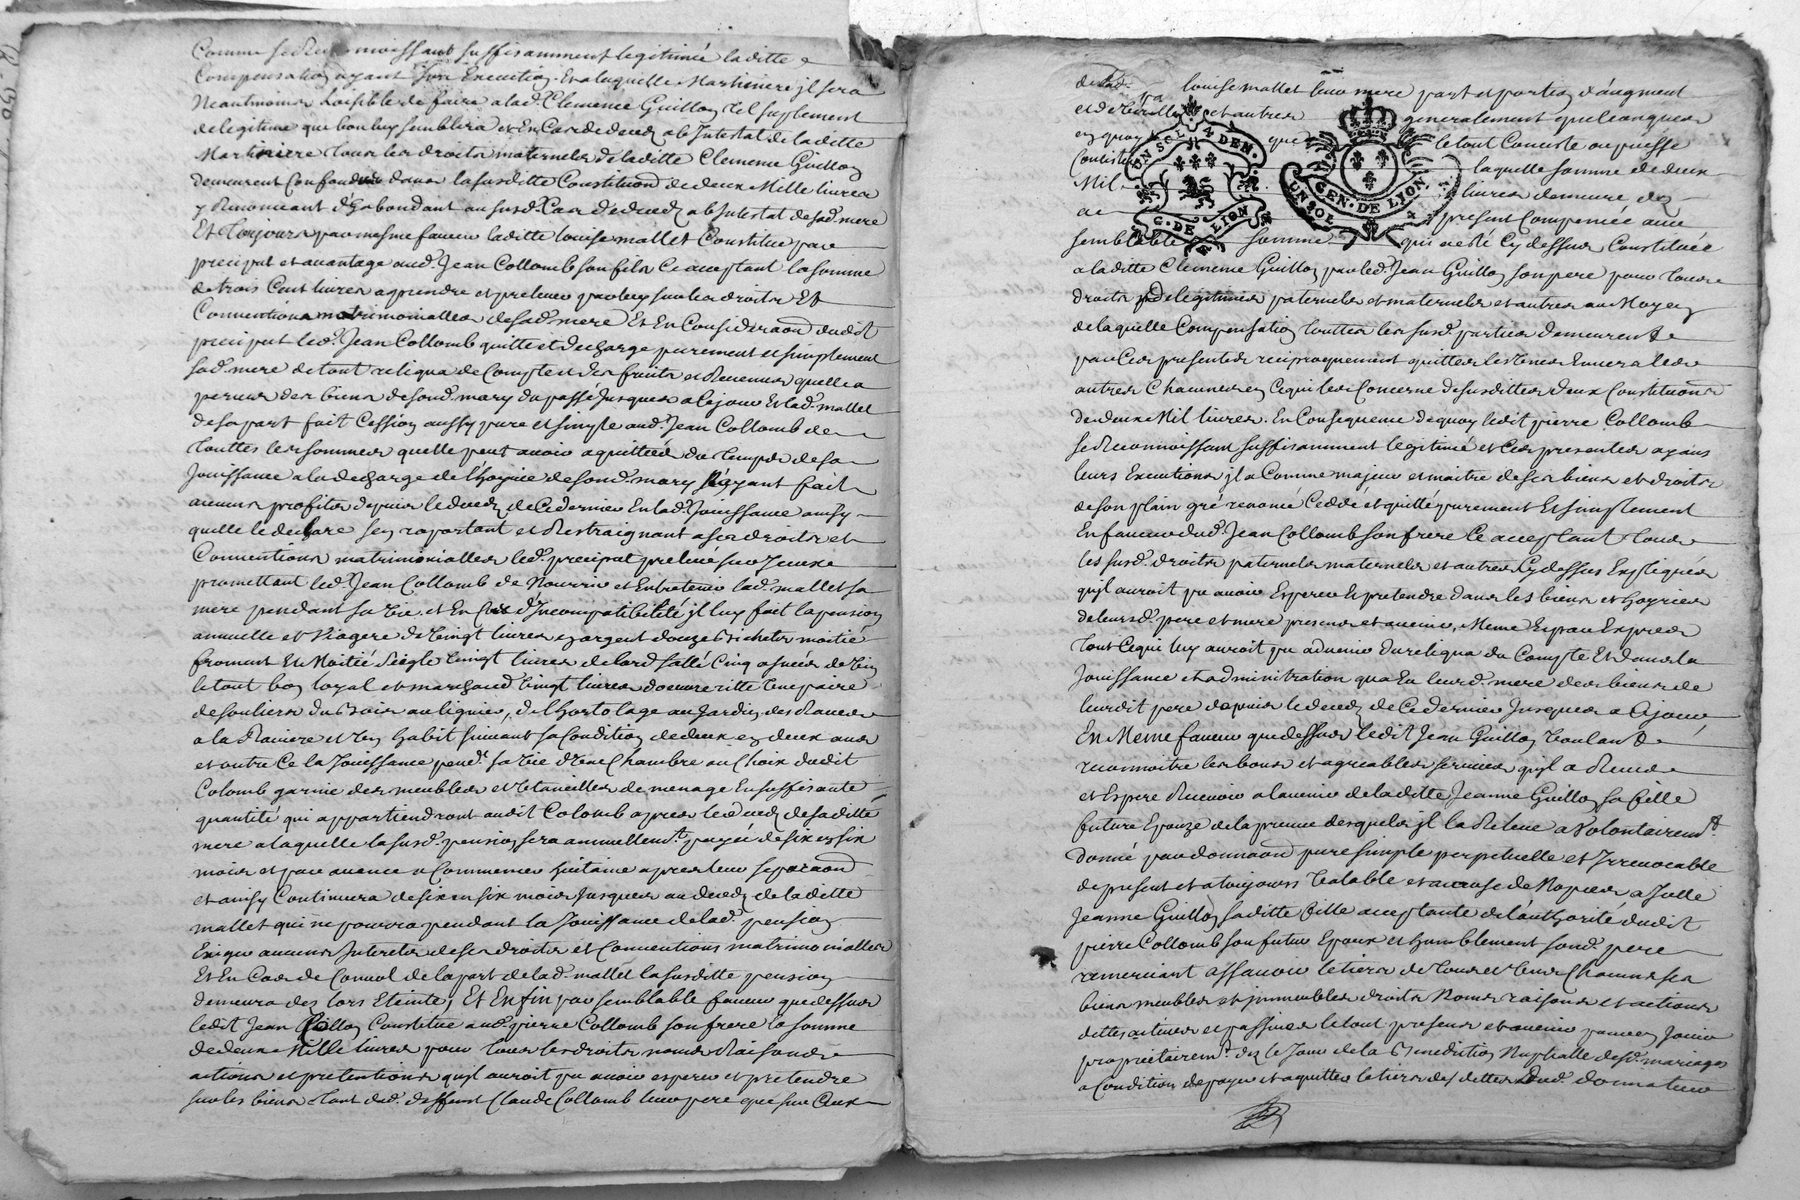 Comme se Reconnoissant suffisamment legitimée laditte
Compensation ayant son Execution. Et a laquelle Martiniere jl sera
Neantmoins Loisible de faire a lad. Clemence Guillon tel suplement
de legitime que bon luy semblera et En Cas de decez ab Intestat de laditte
Martiniere tous les droits maternels de laditte Clemence Guillon
demeurent Confondus dans la susditte Constituon de deux Mille livres
y Renonceant d'abondant au susd. Cas de decez ab Intestat de sad. mere
Et toujours par mesme faveur laditte Louise mallet Constitue par
preciput et avantage aud. Jean Collomb son fils Ce acceptant la somme
de trois Cent livres a prendre et prelever par luy sur les droits Et
Conventions matrimonialles de sad. mere Et En Consideraon dudit
preciput led. Jean Collomb quitte et decharge purement et simplement
sad. mere de tout reliqua de Compte et des fruits et Revenus quelle a
perceus des biens de sond. mary du passé Jusques a Cejour Et lad. mallet
de sa part fait Cession aussy pure et simple aud. Jean Collomb de
touttes les sommes quelle peut avoir aquittées du temps de sa
Jouissance a la decharge de l'hoyrie de sond. mary Nayant fait
aucuns profits depuis le decez de Ce dernier En lad. Jouissance ainsy
quelle le declare sen raportant et Restraignant a ses droits et
Conventions matrimonialles led. preciput prelevé sur Iceux
promettant led. Jean Collomb de Nourrir et Entretenir lad. mallet sa
mere pendant sa vie et En Cas d'Incompatibilité jl luy fait la pension
annuelle et viagere de vingt livres en argent douze Bichets moitié
froment Et Moitié seigle vingt livres de lard sallé Cinq asnées de vin
le tout bon loyal et marchand vingt livres d'oeuvre ritte une paire
de souliers du Bois au lignier, de l'hortolage au Jardin des Raves
a la Raviere et un habit suivant sa Condition de deux en deux ans
et outre Ce la Jouissance pendt sa vie d'une Chambre au Choix dudit
Colomb garnie des meubles et Utancilles de menage En suffisante
quantité qui appartiendront audit Colomb apres le decez de saditte
mere a laquelle la susd. pension sera annuellemt payée de six en six
mois et par avance a Commencer huitaine apres leur separaon
et ainsy Continuera de six en six mois Jusques au decez de laditte
mallet qui ne pourra pendant la Jouissance de lad. pension
Exiger aucuns Interets de ses droits et Conventions matrimonialles
Et En Cas de Convol de la part de lad. mallet la susditte pension
demeura des lors Eteinte; Et Enfin par semblable faveur que dessus
ledit Jean Collomb Constitue aud. pierre Collomb son frere la somme
de deux Mille livres pour tous les droits noms Raisons
actions et pretentions quyl auroit pu avoir esperer et pretendre
sur les biens tant dud. deffunt Claude Collomb leur pere que sur Ceux
de lad. louise mallet leur mere part et portion d'augment
et de et autres generalement quelconques
en quoy que le tout Consiste ou puisse
Consister laquelle somme de deux
Mil livres demeure des
a present Compensée avec
semblable somme qui a esté Cy dessus Constituée
a laditte Clemence Guillon par led. Jean Guillon son pere pour tous
droits de legitimes paternels et maternels et autres au Moyen
de laquelle Compensation touttes les susd. parties demeurent
par Ces presentes reciproquement quittes les unes Envers les
autres Chacunes en Ce qui les Concerne desusdittes deux Constituons
de deux Mil livres. En Consequence de quoy ledit pierre Collomb
se Reconnoissant suffisamment legitimé et Ces presentes ayans
leurs Executions jl a Comme majeur et maitre de ses biens et droits
de son plain gré renoncé Ceddé et quitté purement Et simplement
En faveur dud. Jean Collomb son frere Ce acceptant tous
les susd. droits paternels maternels et autres Cy dessus Expliqués
quyl auroit pu avoir Esperer Et pretendre dans les biens et hoyries
de leursd. pere et mere presens et avenir, Meme Et par Expres
tout Ce qui luy auroit pu advenir du reliqua du Compte Et dans la
Jouissance et administration qua Eu leurd. mere des biens de
leurdit pere depuis le decez de Ce dernier Jusques a Cejour
En Meme faveur que dessus ledit Jean Guillon voulant
reconnoitre les bons et agreables services quyl a Receus
et Espere Recevoir a lavenir de laditte Jeanne Guillon sa fille
future Epouze de la preuve desquels jl la Releve a Volontairemt
Donné par donnaon pure simple perpetuelle et Irrevocable
de present et a toujours valable et a cause de Nopces a Jcelle
Jeanne Guillon saditte fille acceptante de l'authorité dudit
pierre Collomb son futur Epoux et humblement sond. pere
remerciant assavoir le tiers de tous et uns Chacuns ses
biens meubles et jmmeubles droits Noms raisons et actions
dettes actives et passives le tout presens et avenir pour en Jouir
propriétairemt des le Jour de la Benediction Nuptialle desd. mariages
a Condition de payer et aquitter le tiers des dettes dud. donnateur
UN SOL 4 DEN.
G. DE LION
GEN. DE LYON
UN SOL 4